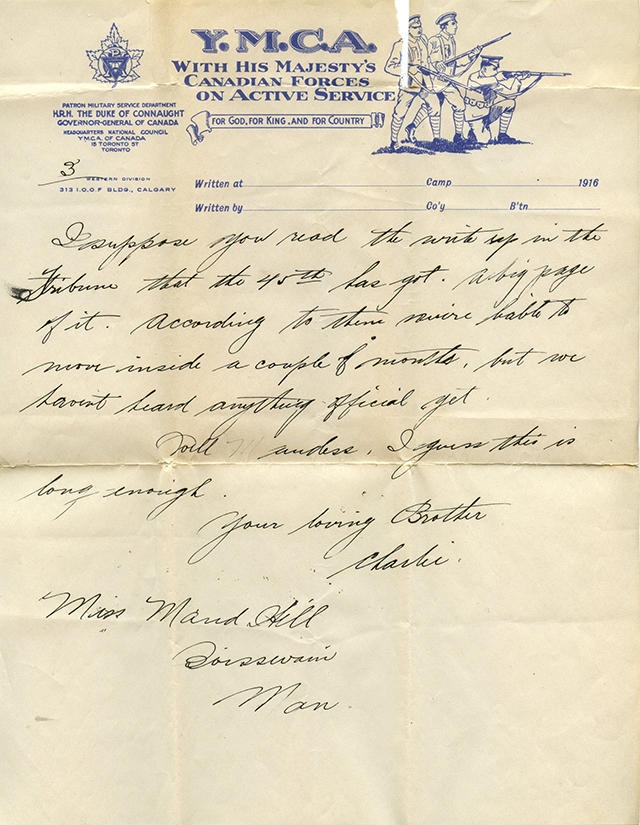 Y.M.C.A.
WITH HIS MAJESTY'S
CANADIAN FORCES
ON ACTIVE SERVICE
FOR GOD, FOR KING, AND FOR COUNTRY
PATRON MILITARY SERVICE DEPARTMENT
H.R.H. THE DUKE OF CONNAUGHT
GOVERNOR-GENERAL OF CANADA
HEADQUARTERS NATIONAL COUNCIL
Y.M.C.A. OF CANADA
15 TORONTO ST
TORONTO
3
WESTERN DIVISION
313 I.O.O.F BLDG., CALGARY
Written at Camp 1916
Written by Co'y B'tn
I suppose you read the write up in the
Tribune that the 45th has got. a big page
of it. According to them we're liable to
move inside a couple of months, but we
havent heard anything official yet.
Well I guess this is
long enough.
Your loving Brother
Charlie.
Miss Maud Hill
Boissevain
Man.